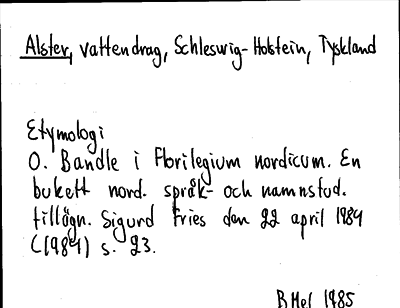 Alster, vattendrag, Schleswig-Holstein, Tyskland
Etymologi
O. Bandle i Florilegium nordicum. En
bukett nord. språk- och namnstud.
tillägn. Sigurd Fries den 22 april 1984
(1984) s. 23.
B Hel 1985